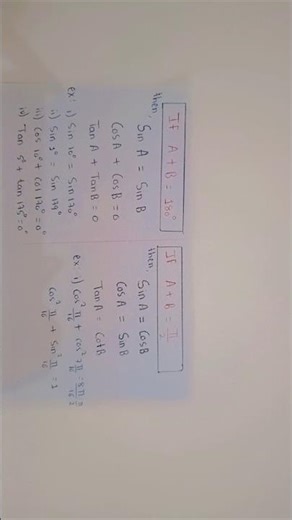 If A + B = 180°
then,
Sin A = Sin B
Cos A + Cos B = 0
Tan A + Tan B = 0
ex: i) Sin 10° = Sin 170°
ii) Sin 1° = Sin 179°
iii) Cos 10° + Cos 170° = 0°
iv) Tan 5° + tan 175° = 0°
If A + B = π/2
then,
Sin A = Cos B
Cos A = Sin B
Tan A = Cot B
ex: i) Cos² π/16 + Cos² 7π/16
Cos² π/16 + Sin² π/16 = 1